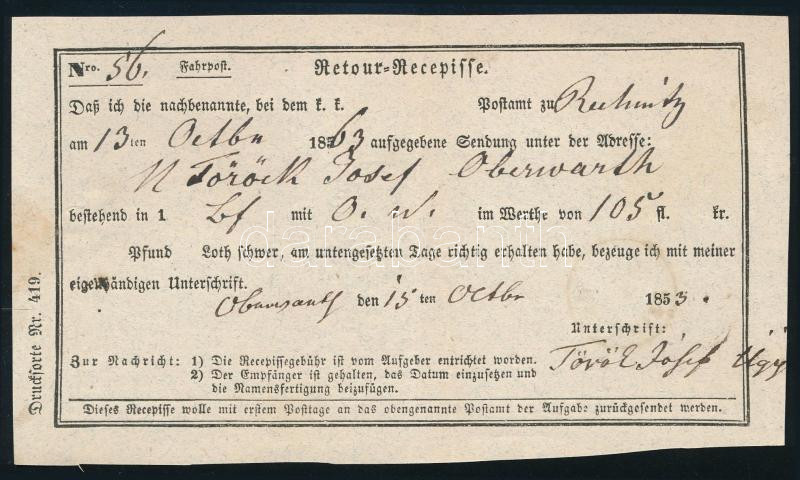 Nro. 56. Fahrpost. Retour-Recepisse.
Daß ich die nachbenannte, bei dem k. k. Postamt zu Rechnitz
am 13ten Octbr 1863 aufgegebene Sendung unter der Adresse:
Török Josef Oberwarth
bestehend in 1 Bf mit O. W. im Werthe von 105 fl. kr.
Pfund Loth schwer, am untengesetzten Tage richtig erhalten habe, bezeuge ich mit meiner
eigenhändigen Unterschrift.
Oberwarth den 15ten Octbr 1853.
Unterschrift:
Török József
Zur Nachricht: 1) Die Recepissegebühr ist vom Aufgeber entrichtet worden.
2) Der Empfänger ist gehalten, das Datum einzusetzen und
die Namensfertigung beizufügen.
Dieses Recepisse wolle mit erstem Posttage an das obengenannte Postamt der Aufgabe zurückgesendet werden.
Drucksorte Nr. 419.
darabanth